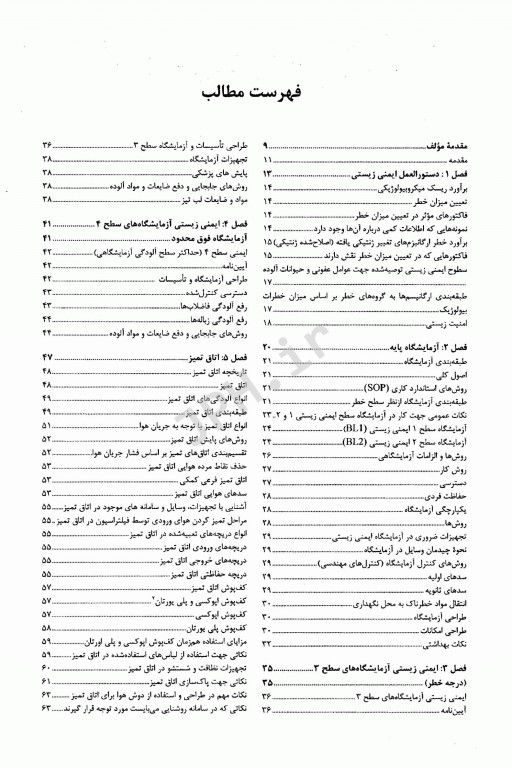 فهرست مطالب
مقدمهٔ مؤلف ........ ۹
مقدمه ........ ۱۱
فصل ۱: دستورالعمل ایمنی زیستی ........ ۱۳
برآورد ریسک میکروبیولوژیکی ........ ۱۴
تعیین میزان خطر ........ ۱۴
فاکتورهای مؤثر در تعیین میزان خطر ........ ۱۴
نمونه‌هایی که اطلاعات کمی درباره آن‌ها وجود دارد ........ ۱۴
برآورد خطر ارگانیزم‌های تغییر ژنتیکی یافته (اصلاح‌شده ژنتیکی) ۱۵
فاکتورهایی که در تعیین میزان خطر نقش دارند ........ ۱۵
سطوح ایمنی زیستی توصیه‌شده جهت عوامل عفونی و حیوانات آلوده
........ ۱۷
طبقه‌بندی ارگانیسم‌ها به گروه‌های خطر بر اساس میزان خطرات
بیولوژیک ........ ۱۷
امنیت زیستی ........ ۱۸
فصل ۲: آزمایشگاه پایه ........ ۲۰
طبقه‌بندی آزمایشگاه ........ ۲۱
اصول کلی ........ ۲۱
روش‌های استاندارد کاری (SOP) ........ ۲۱
طبقه‌بندی آزمایشگاه ازنظر سطح خطر ........ ۲۱
نکات عمومی جهت کار در آزمایشگاه سطح ایمنی زیستی ۱ و ۲ .. ۲۳
آزمایشگاه سطح ۱ ایمنی زیستی (BL1) ........ ۲۴
آزمایشگاه سطح ۲ ایمنی زیستی (BL2) ........ ۲۴
روش‌ها و الزامات آزمایشگاهی ........ ۲۶
روش کار ........ ۲۷
دسترسی ........ ۲۷
حفاظت فردی ........ ۲۸
یکپارچگی آزمایشگاه ........ ۲۸
روش‌ها ........ ۲۸
تجهیزات ضروری در آزمایشگاه ایمنی زیستی ........ ۲۹
نحوهٔ چیدمان وسایل در آزمایشگاه ........ ۲۹
روش‌های کنترل آزمایشگاه (کنترل‌های مهندسی) ........ ۲۹
سدهای اولیه ........ ۲۹
سدهای ثانویه ........ ۲۹
انتقال مواد خطرناک به محل نگهداری ........ ۳۰
طراحی آزمایشگاه ........ ۳۰
طراحی امکانات ........ ۳۰
نکات بهداشتی ........ ۳۲
فصل ۳: ایمنی زیستی آزمایشگاه‌های سطح ۳ ........ ۳۵
(درجه خطر) ........ ۳۵
ایمنی زیستی آزمایشگاه‌های سطح ۳ ........ ۳۶
آیین‌نامه ........ ۳۶
طراحی تأسیسات و آزمایشگاه سطح ۳ ........ ۳۶
تجهیزات آزمایشگاه ........ ۳۸
پایش های پزشکی ........ ۳۸
روش‌های جابجایی و دفع ضایعات و مواد آلوده ........ ۳۸
مواد و ضایعات لب تیز ........ ۳۸
فصل ۴: ایمنی زیستی آزمایشگاه‌های سطح ۴ ........ ۴۱
آزمایشگاه فوق محدود ........ ۴۱
ایمنی سطح ۴ (حداکثر سطح آلودگی آزمایشگاهی) ........ ۴۲
آیین‌نامه ........ ۴۲
طراحی آزمایشگاه و تأسیسات ........ ۴۲
دسترسی کنترل‌شده ........ ۴۳
رفع آلودگی فاضلاب‌ها ........ ۴۴
رفع آلودگی زباله‌ها ........ ۴۴
روش‌های جابجایی و دفع ضایعات و مواد آلوده ........ ۴۴
فصل ۵: اتاق تمیز ........ ۴۷
تاریخچه اتاق تمیز ........ ۴۸
اتاق تمیز ........ ۴۸
انواع آلودگی‌های اتاق تمیز ........ ۴۹
طبقه‌بندی اتاق تمیز ........ ۴۹
انواع اتاق تمیز با توجه به جریان هوا ........ ۵۱
روش‌های پایش اتاق تمیز ........ ۵۲
تقسیم‌بندی اتاق‌های تمیز بر اساس فشار جریان هوا ........ ۵۲
حذف نقاط مرده هوایی اتاق تمیز ........ ۵۳
اتاق تمیز فرعی کمکی ........ ۵۳
سدهای هوایی اتاق تمیز ........ ۵۳
آشنایی با تجهیزات، وسایل و سامانه های موجود در اتاق تمیز ..... ۵۵
مراحل تمیز کردن هوای ورودی توسط فیلتراسیون در اتاق تمیز .. ۵۵
انواع دریچه‌های تعبیه‌شده در اتاق تمیز ........ ۵۵
دریچه‌های ورودی اتاق تمیز ........ ۵۵
دریچه‌های خروجی اتاق تمیز ........ ۵۵
دریچه حفاظتی اتاق تمیز ........ ۵۵
کف‌پوش اتاق تمیز ........ ۵۷
کف‌پوش اپوکسی و پلی یورتان ........ ۵۷
کف‌پوش اپوکسی ........ ۵۷
کف‌پوش پلی یورتان ........ ۵۸
مزایای استفاده هم‌زمان کف‌پوش اپوکسی و پلی اورتان ........ ۵۹
نکاتی جهت استفاده از لباس‌های استفاده‌شده در اتاق تمیز ..... ۵۹
تجهیزات نظافت و شستشو در اتاق تمیز ........ ۶۰
نکاتی جهت پاک‌سازی اتاق تمیز ........ ۶۱
نکات مهم در طراحی و استفاده از دوش هوا برای اتاق تمیز ..... ۶۳
نکاتی که در سامانه روشنایی می‌بایست مورد توجه قرار گیرند ..... ۶۳